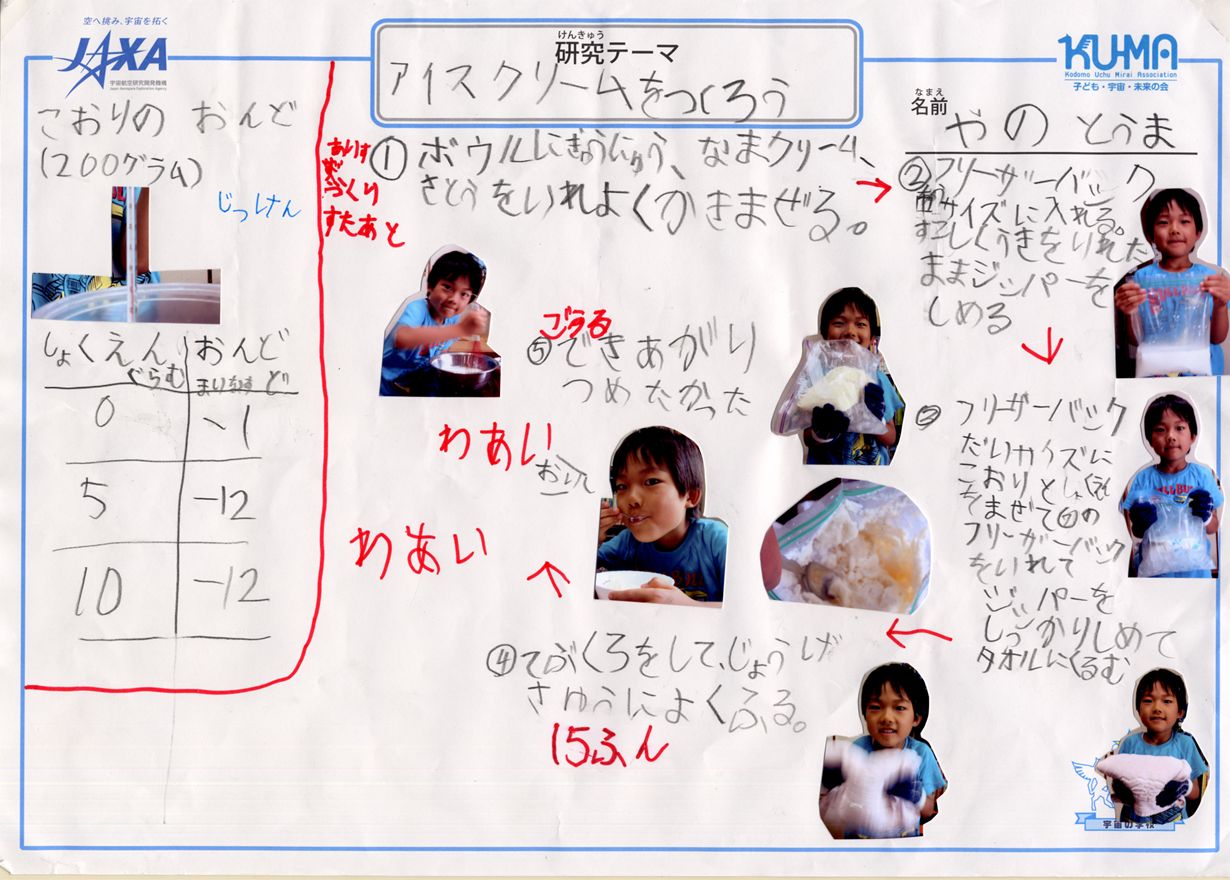 空へ挑み、宇宙を拓く
JAXA
宇宙航空研究開発機構
Japan Aerospace Exploration Agency
けんきゅう
研究テーマ
アイスクリームをつくろう
KU-MA
Kodomo Uchu Mirai Association
子ども・宇宙・未来の会
なまえ
名前
やの とうま
こおりの おんど
(200グラム)
じっけん
しょくえん おんど
ぐらむ まいなす ど
0 -1
5 -12
10 -12
づくり
すたあと
① ボウルにぎゅうにゅう、なまクリーム、
さとうをいれよくかきまぜる。
② フリーザーバック
サイズに入れる。
すこしくうきをいれた
ままジッパーを
しめる
③ フリーザーバック
だいサイズに
こおりとしょくえん
をまぜて②の
フリーザーバック
をいれて
ジッパーを
しっかりしめて
タオルにくるむ
④ てぶくろをして、じょうげ
さゆうによくふる。
15ふん
ごうる
⑤ できあがり
つめたかった
わあい
わあい
宇宙の学校